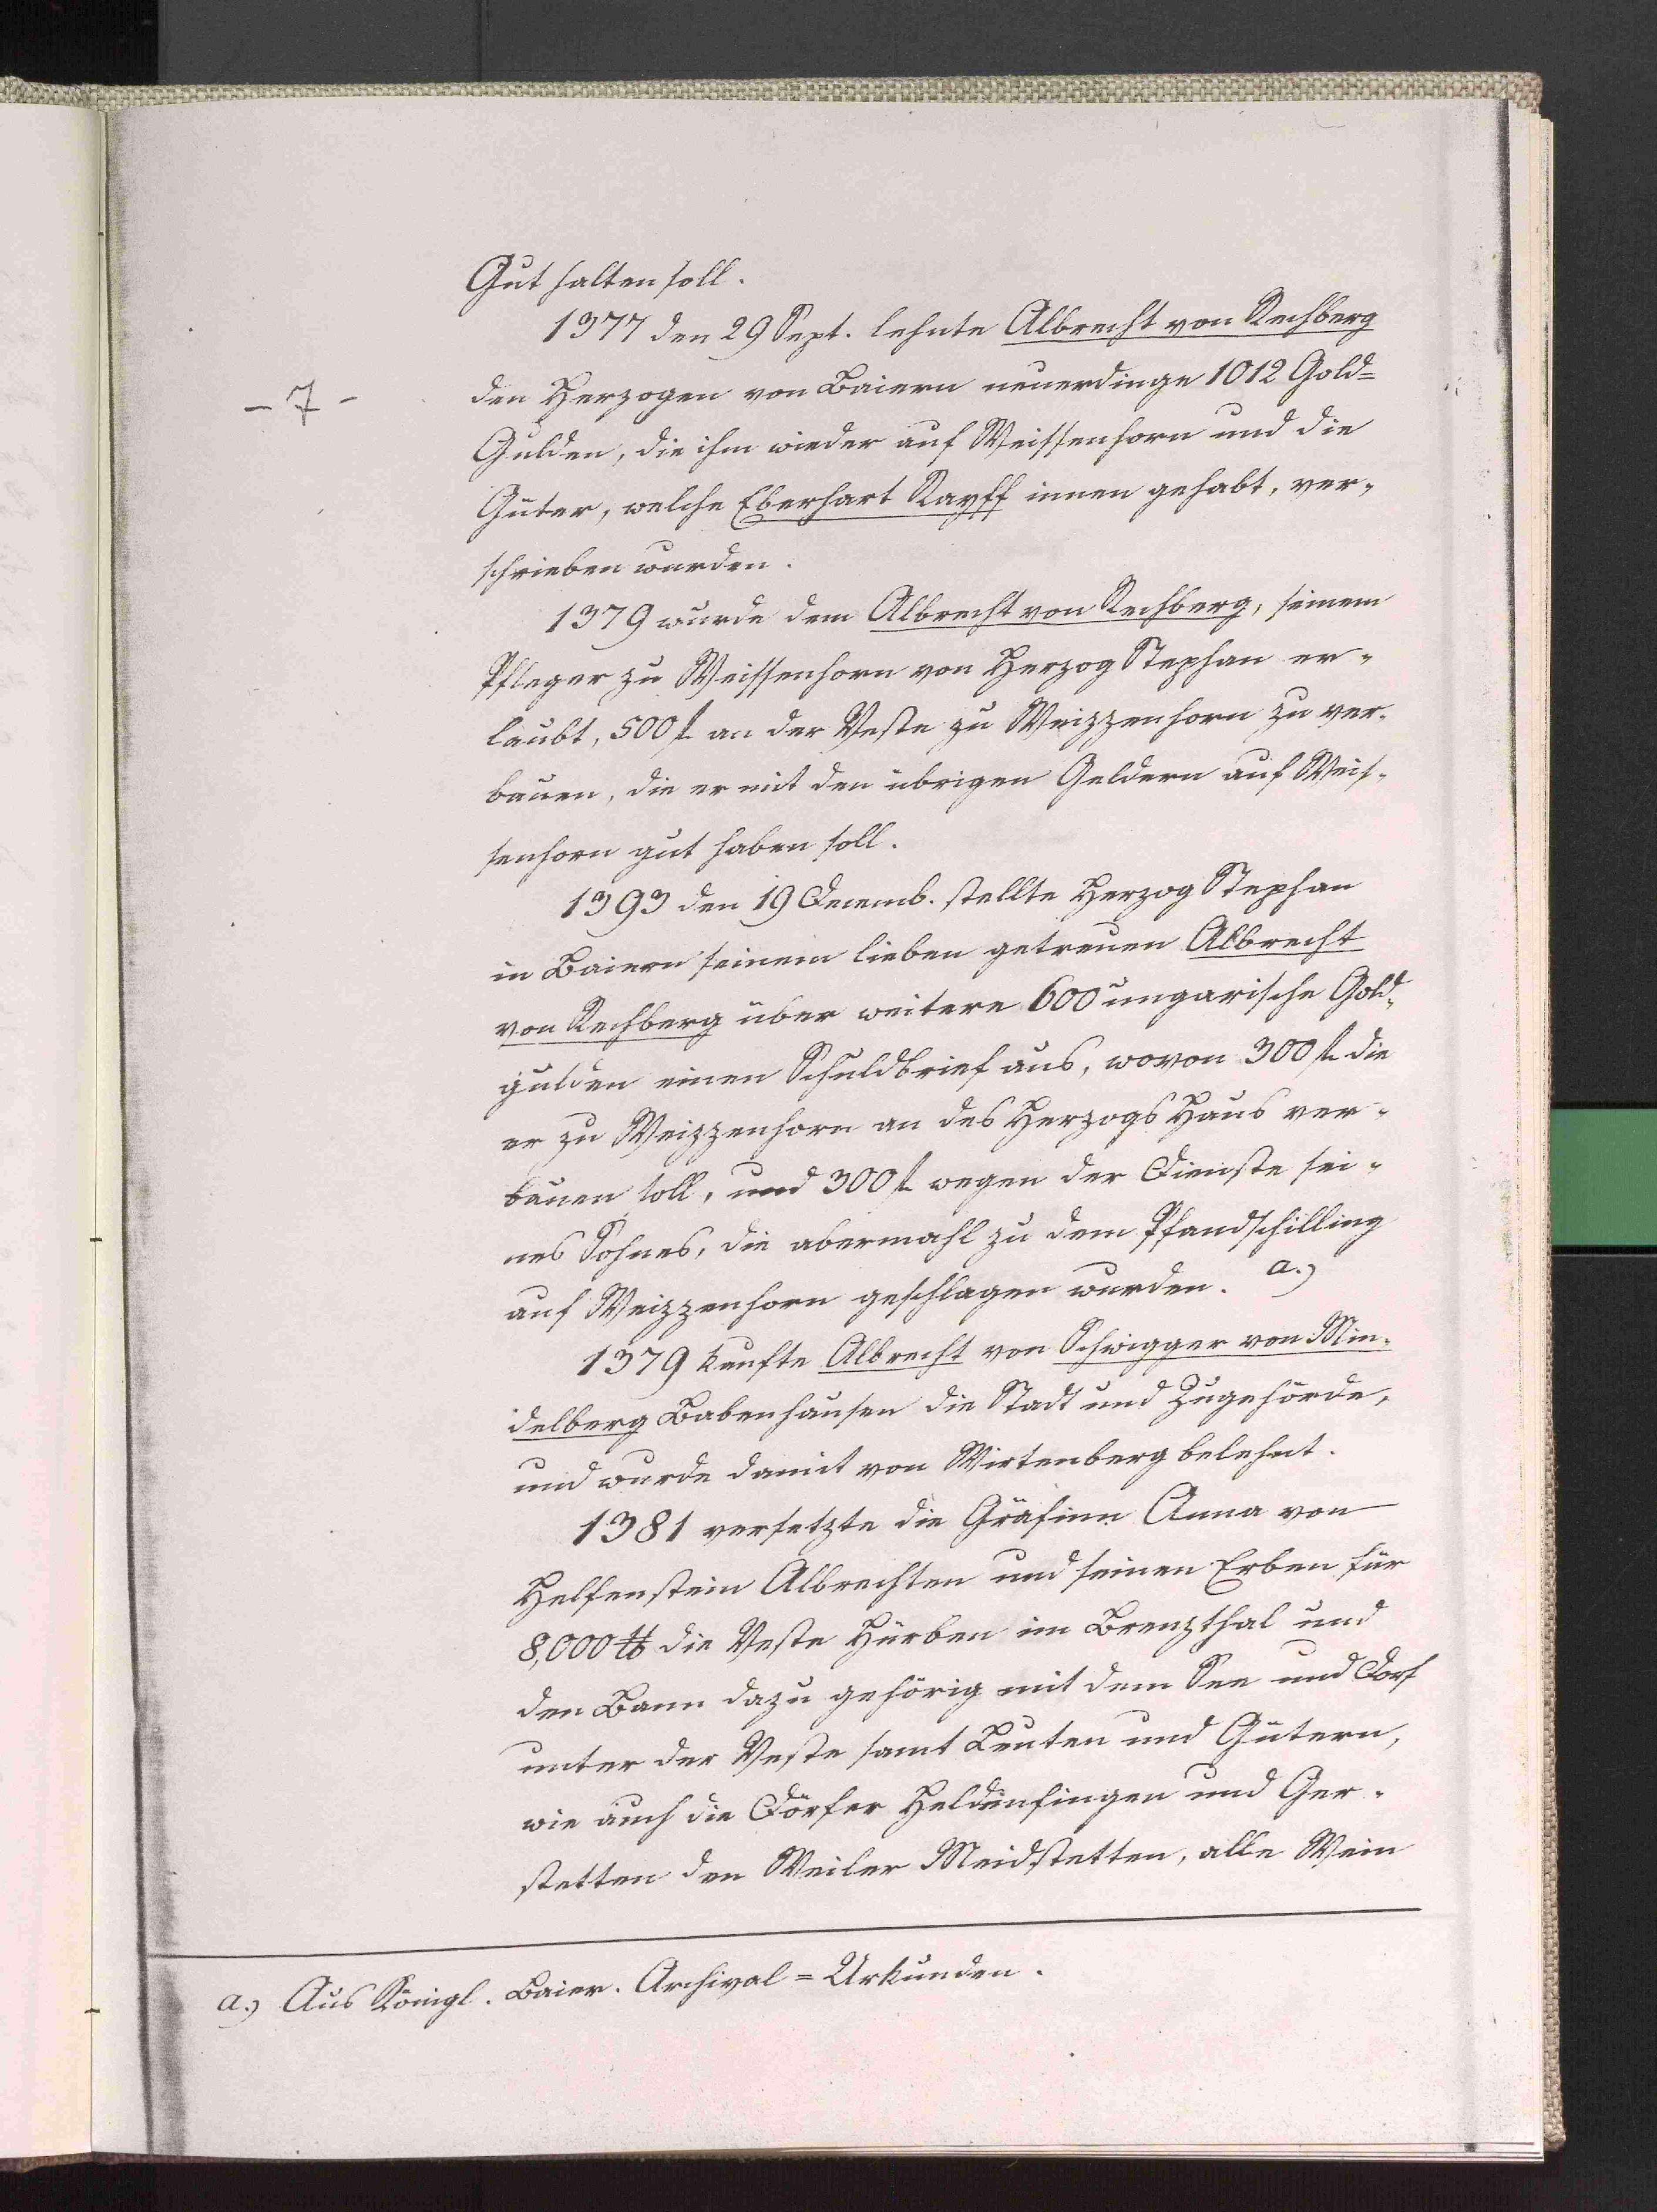 Gut halten soll.
1377 den 29 Sept. lehnte Albrecht von Rechberg
- 7 -
den Herzogen von Baiern neuerdings 1012 Gold=
Gulden, die ihm wieder auf Weissenhorn und die
Güter, welche Eberhart Kayff innen gehabt, ver-
schrieben wurden.
1379 wurde dem Albrecht von Rechberg, seinem
Pfleger zu Weissenhorn von Herzog Stephan er-
laubt, 500 fl. an der Veste zu Weizzenhorn zu ver-
bauen, die er mit den übrigen Geldern auf Weis-
senhorn gut haben soll.
1393 den 19 Decemb. stellte Herzog Stephan
in Baiern seinem lieben getreuen Albrecht
von Rechberg über weitere 600 ungarische Gold-
gulden einen Schuldbrief aus, wovon 300 fl. die
er zu Weizzenhorn an des Herzogs Haus ver-
bauen soll, und 300 fl. wegen der Dienste sei-
nes Sohnes, die abermahl zu dem Pfandschilling
auf Weizzenhorn geschlagen wurden. a.)
1379 kaufte Albrecht von Schwigger von Min-
delberg Babenhausen die Stadt und Zugehörde,
und wurde damit von Wirtenberg belehnt.
1381 versetzte die Gräfinn Anna von
Helfenstein Albrechten und seinen Erben für
8,000 ℔ die Veste Hürben im Brenzthal und
den Bann dazu gehörig mit dem See und Dorf
unter der Veste samt Leuten und Gütern,
wie auch die Dörfer Heldenfingen und Ger-
stetten den Weiler Meidstetten, alle Wein
a.) Aus Königl. Baier. Archival = Urkunden.